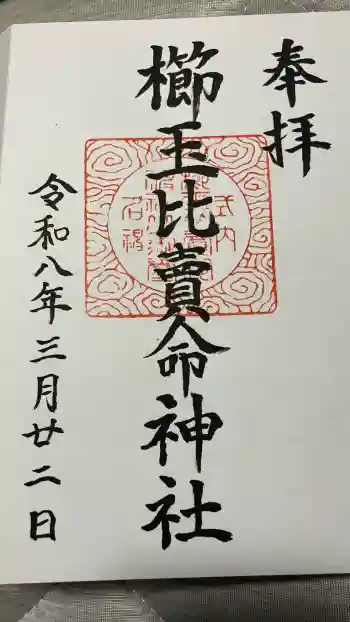 奉拝
櫛玉比賣命神社
式内
名神
令和八年三月廿二日